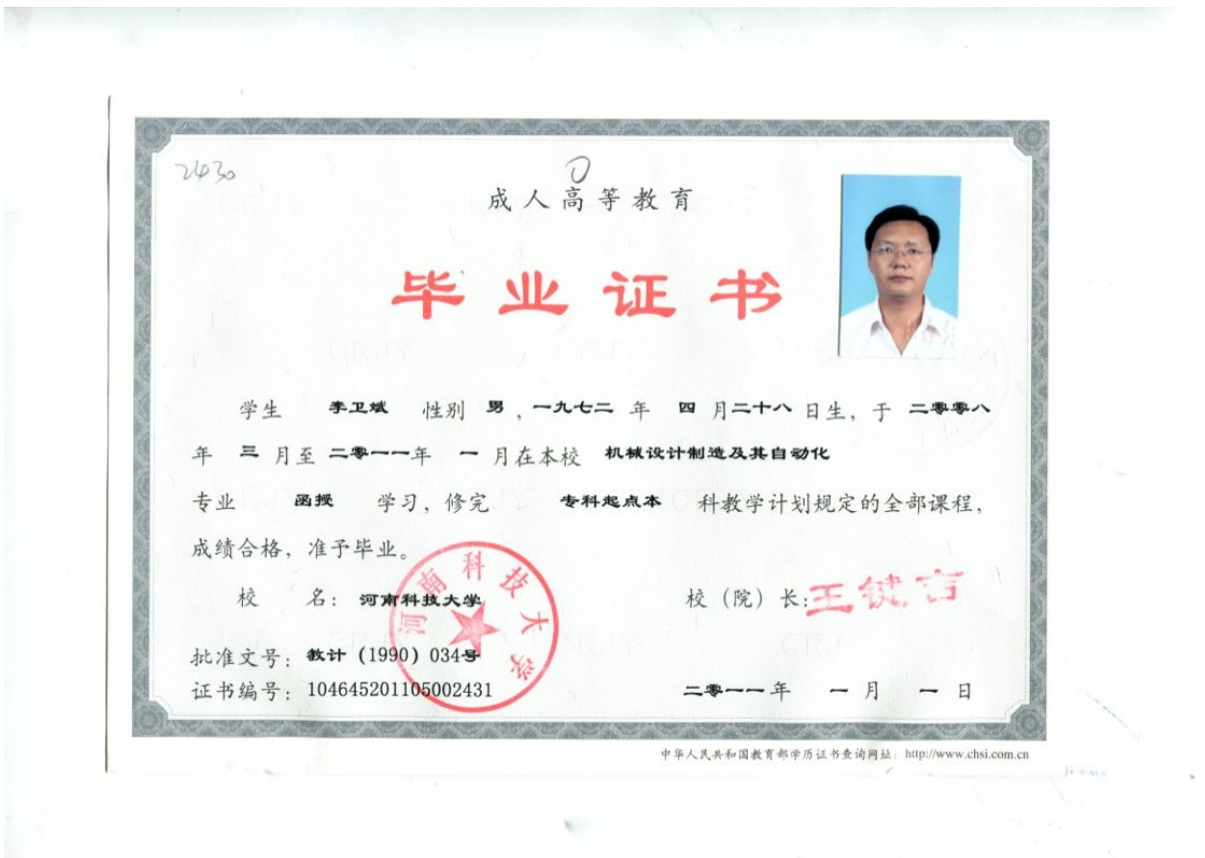 2430
成人高等教育
毕业证书
学生 李卫斌 性别 男，一九七二 年 四 月二十八 日生，于 二零零八
年 三 月至 二零一一年 一 月在本校 机械设计制造及其自动化
专业 函授 学习，修完 专科起点本 科教学计划规定的全部课程，
成绩合格，准予毕业。
校 名：河南科技大学 校（院）长：王键吉
河南科技大学
批准文号：教计（1990）034号
证书编号：104645201105002431 二零一一年 一 月 一 日
中华人民共和国教育部学历证书查询网址：http://www.chsi.com.cn